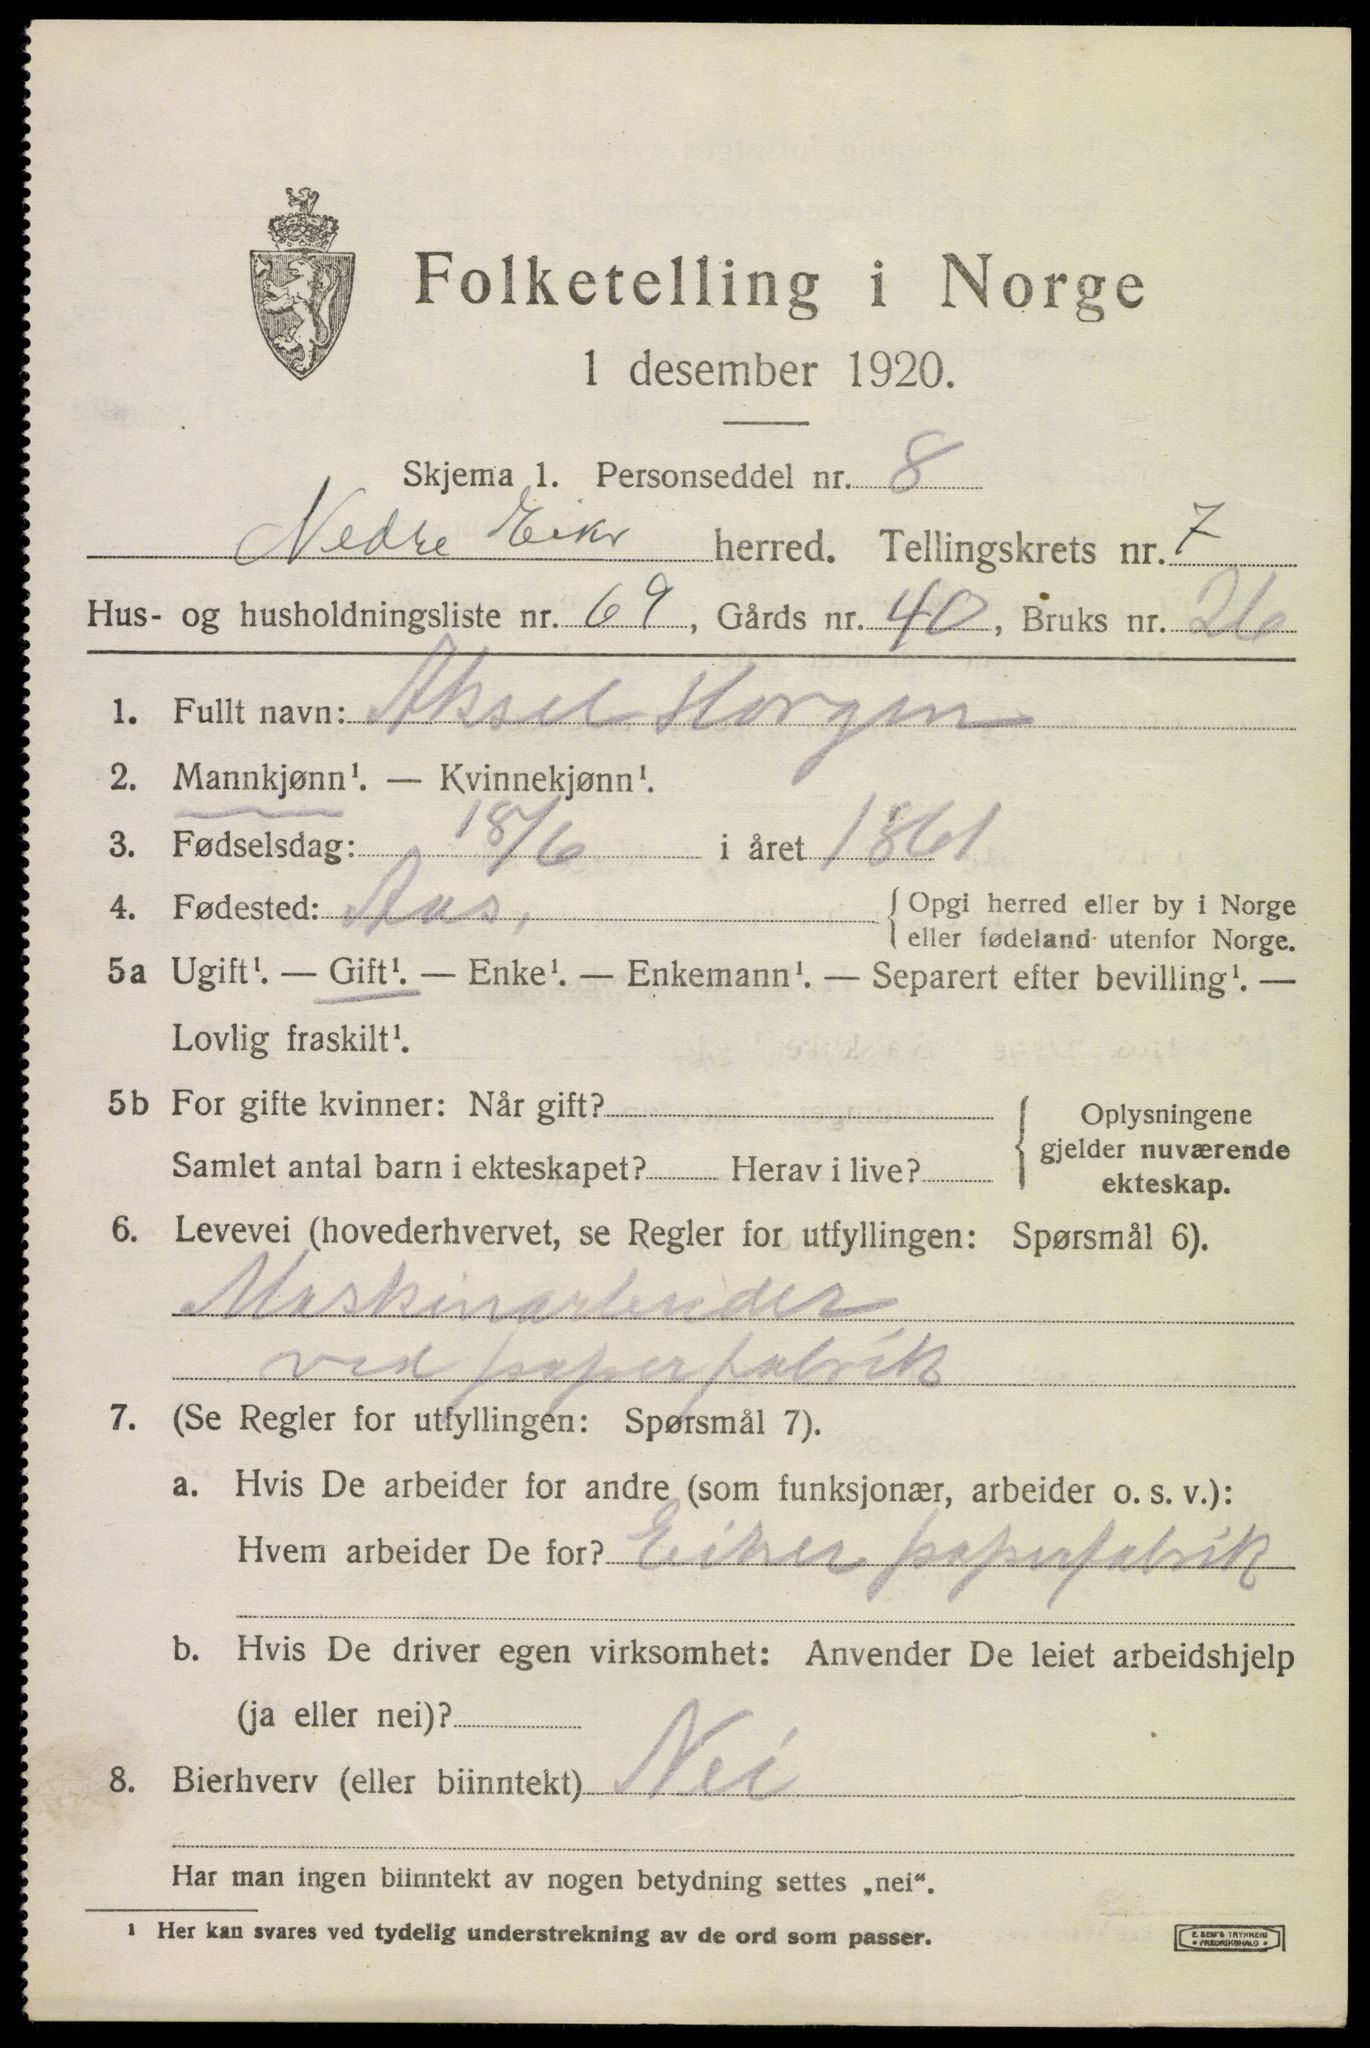 Folketelling i Norge
1 desember 1920.
Skjema 1. Personseddel nr. 8
Nedre Eiker herred. Tellingskrets nr. 7
Hus- og husholdningsliste nr. 69, Gårds nr. 40, Bruks nr. 26
1. Fullt navn: Aksel Horgen
2. Mannkjønn¹. — Kvinnekjønn¹.
3. Fødselsdag: 18/6 i året 1861
4. Fødested: Aas, { Opgi herred eller by i Norge
eller fødeland utenfor Norge.
5a Ugift¹. — Gift¹. — Enke¹. — Enkemann¹. — Separert efter bevilling¹. —
Lovlig fraskilt¹.
5b For gifte kvinner: Når gift?
Samlet antal barn i ekteskapet? Herav i live?
{ Oplysningene
gjelder nuværende
ekteskap.
6. Levevei (hovederhvervet, se Regler for utfyllingen: Spørsmål 6).
Maskinarbeider
ved papirfabrik
7. (Se Regler for utfyllingen: Spørsmål 7).
a. Hvis De arbeider for andre (som funksjonær, arbeider o. s. v.):
Hvem arbeider De for? Eiker papirfabrik
b. Hvis De driver egen virksomhet: Anvender De leiet arbeidshjelp
(ja eller nei)?
8. Bierhverv (eller biinntekt) Nei
Har man ingen biinntekt av nogen betydning settes „nei“.
¹ Her kan svares ved tydelig understrekning av de ord som passer.
E. SEM'S TRYKKERI
• FREDRIKSHALD •